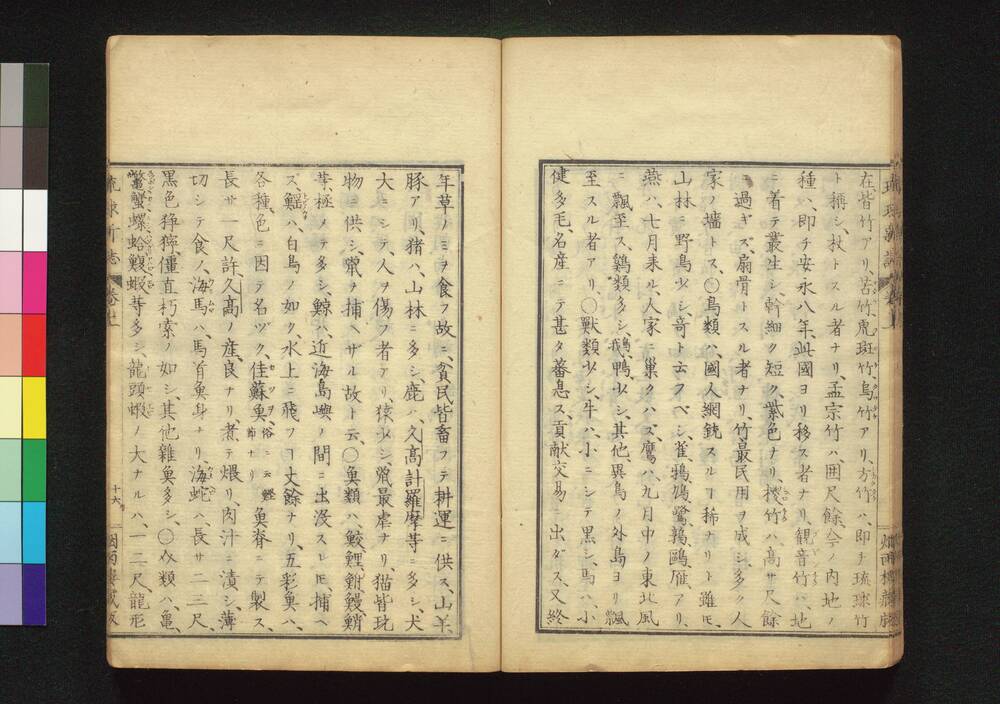 在皆竹アリ、苦竹、虎斑竹、烏竹アリ、方竹ハ、即チ琉球竹
ト稱シ、杖トスル者ナリ、孟宗竹ハ囲尺餘、今ノ内地ノ
種ハ、即チ安永八年、此國ヨリ移ス者ナリ、観音竹ハ、地
ニ着テ叢生シ、幹細ク短ク、紫色ナリ、椶竹ハ、高サ尺餘
ニ過ギズ、扇骨トスル者ナリ、竹最民用ヲ成シ、多ク人
家ノ墻トス、〇鳥類ハ、國人網銃スルヿ稀ナリト雖𪜈、
山林ニ野鳥少シ、奇ト云フベシ、雀、鴇、鳩、鷺、鶉、鷗、雁、アリ、
燕ハ、七月来ル、人家ニ巢クハズ、鷹ハ、九月中ノ東北風
ニ飄至ス、鷄類多シ、鵝、鴨、少シ、其他異鳥ノ外島ヨリ飄
至スル者アリ、〇獸類少シ、牛ハ、小ニシテ黒シ、馬ハ、小
健多毛、名産ニテ甚タ蕃息ス、貢献交易ニ出ダス、又終
年草ノミヲ食フ故ニ、貧民皆畜フテ耕運ニ供ス、山羊
豚アリ、猪ハ、山林ニ多シ、鹿ハ、久高計羅摩等ニ多シ、犬
大ニシテ、人ヲ傷フ者アリ、猿少シ、鼠最虐ナリ、猫皆玩
物ニ供シ、鼠ヲ捕ヘザル故ト云、〇魚類ハ、鮫、鯉、鮒、鰻、鯔
等、極メテ多シ、鯨ハ、近海島嶼ノ間ニ出沒スレ𪜈、捕ヘ
ス、鰩ハ、白鳥ノ如ク、水上ニ飛フヿ丈餘ナリ、五彩魚ハ、
各種色ニ因テ名ヅク、佳蘇魚、俗ニ云鰹節ナリ魚脊ニテ製ス、
長サ一尺許、久高ノ産、良ナリ、煮テ煨リ、肉汁ニ漬シ、薄
切シテ食ノ、海馬ハ、馬首魚身ナリ、海蛇ハ長サ二三尺
黒色猙獰、僵直朽索ノ如シ、其他雜魚多シ、〇介類ハ、亀、
鼈、蟹、螺、蛤、鰒、蝦、等多シ、龍頭蝦ノ大ナルハ、一二尺、龍形
十六